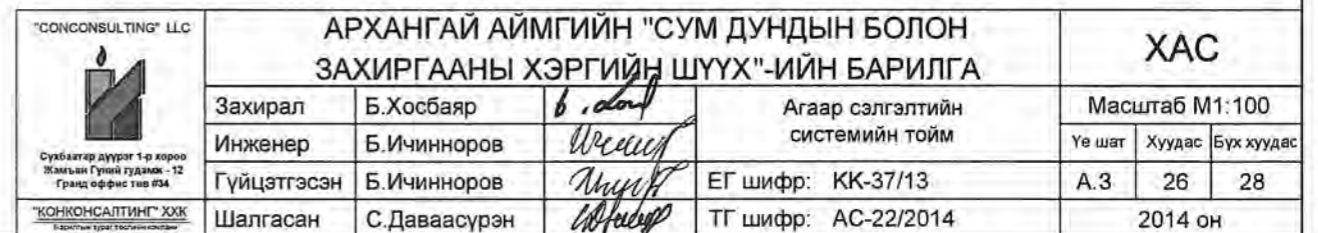 "CONCONSULTING" LLC
Сүхбаатар дүүрэг 1-р хороо
Жамъян Гүний гудамж - 12
Гранд оффис төв #34
"КОНКОНСАЛТИНГ" ХХК
АРХАНГАЙ АЙМГИЙН "СУМ ДУНДЫН БОЛОН
ЗАХИРГААНЫ ХЭРГИЙН ШҮҮХ"-ИЙН БАРИЛГА
ХАС
Захирал Б.Хосбаяр
Инженер Б.Ичинноров
Гүйцэтгэсэн Б.Ичинноров
Шалгасан С.Даваасүрэн
Агаар сэлгэлтийн
системийн тойм
ЕГ шифр: КК-37/13
ТГ шифр: АС-22/2014
Масштаб М1:100
Үе шат Хуудас Бүх хуудас
А.3 26 28
2014 он